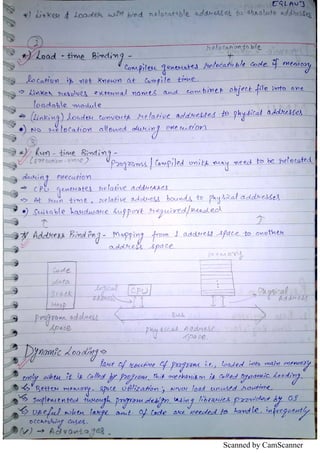 [EQLAN]
*) Linker & Loader will bind relocatable addresses to absolute addresses
②
relocationtable
*) Load - time Binding -
Compiler generates relocatable code if memory
location is not known at compile time.
→ Linker resolves external names and combines object file into one
loadable module
→ (Linking) Loader converts relative addresses to physical addresses
•) No relocation allowed during execution
③
•) Run - time Binding -
(execution time) Programs / Compiled units may need to be relocated
during execution
→ CPU generates relative addresses
→ At run time, relative address bounds to physical addresses
•) Suitable hardware support required/needed
*) Address Binding - Mapping from 1 address space to another
address space
memory
Code
data
Stack
Heap
logical
address
CPU
Physical
Address
Bus
program address
space
physical Address
space.
Dynamic Loading ⇒
Part of routine of program i.e, loaded into main memory
only when it is called by program, this mechanism is called dynamic loading.
↳ Better memory-space utilization, never load unused routine.
↳ Implemented through program design using libraries provided by OS
↳ Useful when large amt of code are needed to handle infrequently
occurring cases.
→ Advantages.
Scanned by CamScanner